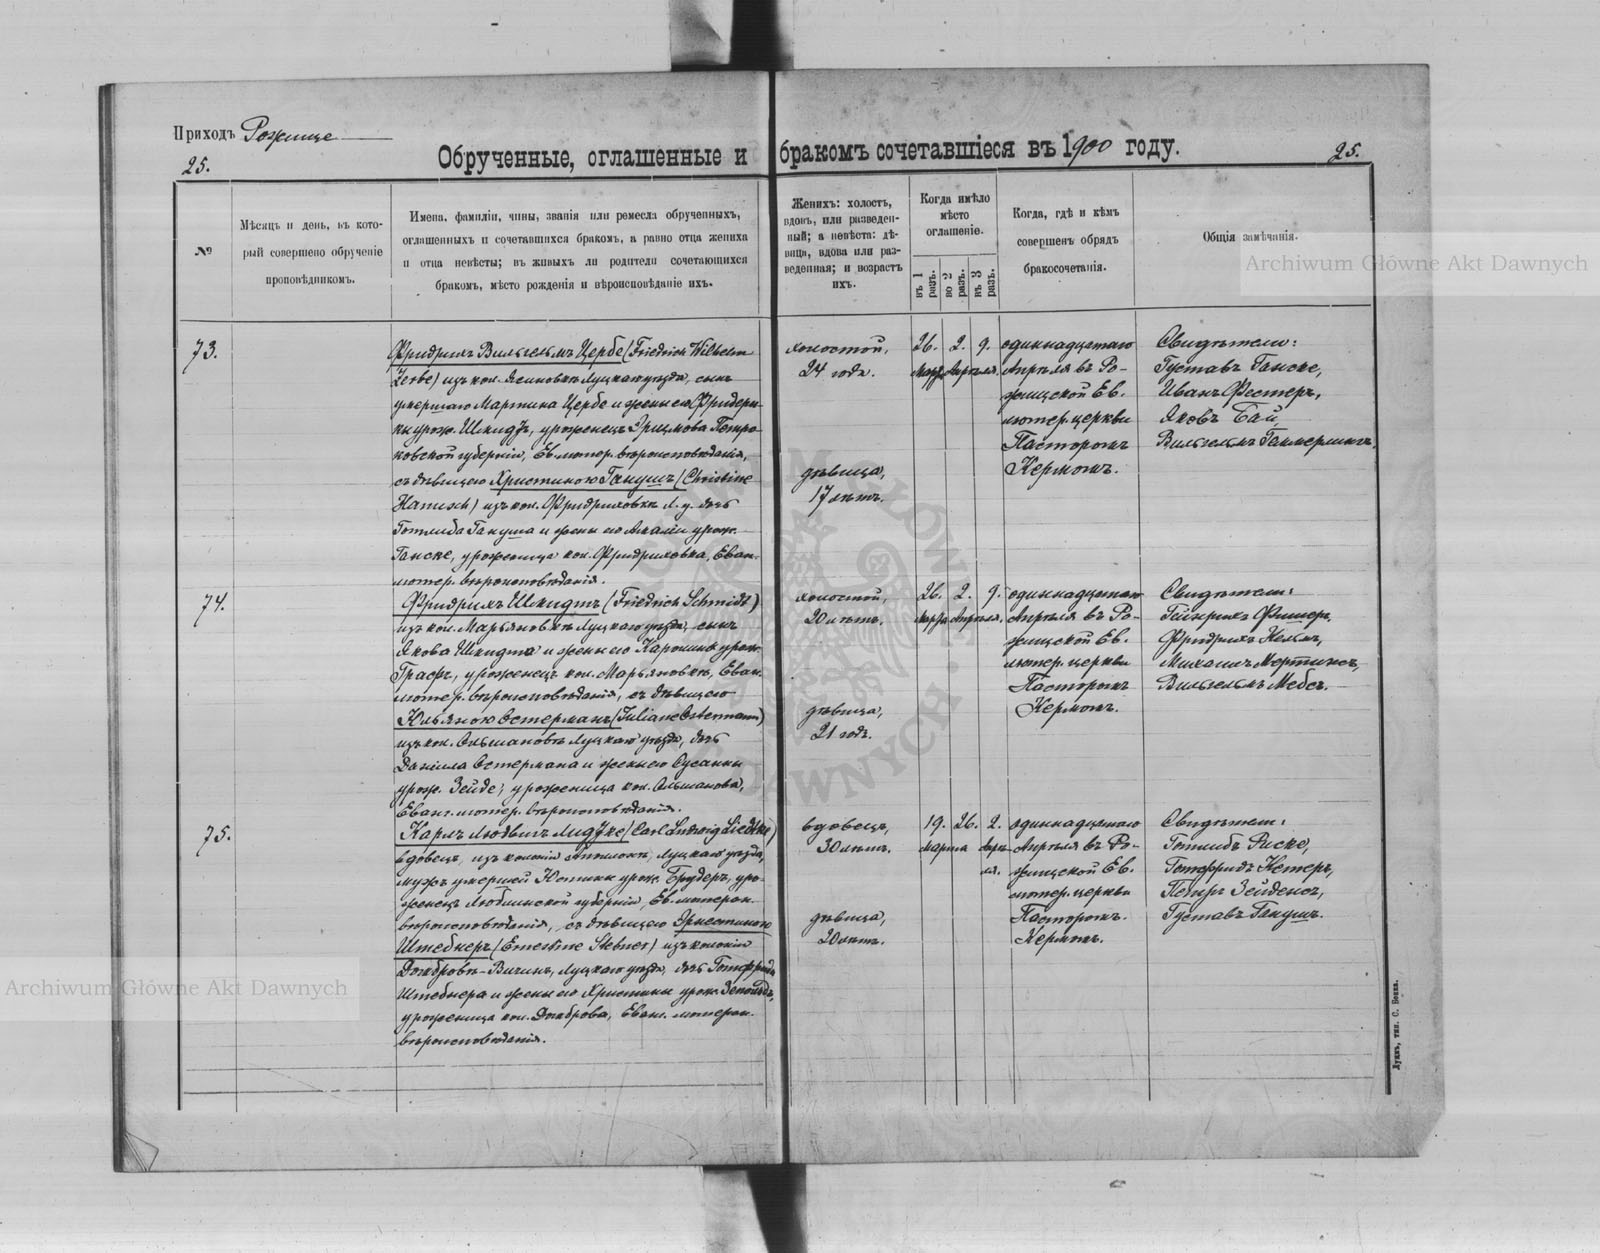 Приходъ Рожище
25.
Обрученные, оглашенные и бракомъ сочетавшіеся въ 1900 году.
25.
№
Мѣсяцъ и день, въ кото-
рый совершено обрученіе
проповѣдникомъ.
Имена, фамиліи, чины, званія или ремесла обрученныхъ,
оглашенныхъ и сочетавшихся бракомъ, а равно отца жениха
и отца невѣсты; въ живыхъ ли родители сочетающихся
бракомъ, мѣсто рожденія и вѣроисповѣданіе ихъ.
Женихъ: холостъ,
вдовъ, или разведен-
ный; а невѣста: дѣ-
вица, вдова или раз-
веденная; и возрастъ
ихъ.
Когда имѣло
мѣсто
оглашеніе.
въ 1 разъ.
во 2 разъ.
въ 3 разъ.
Когда, гдѣ и кѣмъ
совершенъ обрядъ
бракосочетанія.
Общія замѣчанія.
Archiwum Główne Akt Dawnych
73.
Фридрихъ Вильгельмъ Цербе (Friedrich Wilhelm
Zerbe) изъ кол. Ясиновка Луцкаго уѣзда, сынъ
умершаго Мартина Цербе и жены его Фридери-
ки урож. Шмидтъ, уроженецъ Петро-
ковской губерніи, Ев. лютер. вѣроисповѣданія,
съ дѣвицею Христиною Ганушъ (Christine
Hanusch) изъ кол. Фридриховка Л. у. дочь
Готлиба Гануша и жены его Амаліи урож.
Ганске, уроженица кол. Фридриховка, Еван.
лютер. вѣроисповѣданія.
холостой,
24 года.
дѣвица,
17 лѣтъ.
26. 2. 9.
Марта Апрѣля.
одиннадцатаго
Апрѣля въ Ро-
жищской Ев.
лютер. церкви
Пасторомъ
Кермомъ.
Свидѣтели:
Густавъ Ганске,
Иванъ Фестеръ,
Яковъ Бай,
Вильгельмъ Гаммерлингъ.
74.
Фридрихъ Шмидтъ (Friedrich Schmidt)
изъ кол. Марьяновка Луцкаго уѣзда, сынъ
Якова Шмидта и жены его Каролины урож.
Графъ, уроженецъ кол. Марьяновка, Еван.
лютер. вѣроисповѣданія, съ дѣвицею
Юльяною Остерманъ (Juliane Ostermann)
изъ кол. Ольшановка Луцкаго уѣзда, дочь
Даніила Остермана и жены его Сусанны
урож. Зейде, уроженица кол. Ольшанова,
Еванг. лютер. вѣроисповѣданія.
холостой,
20 лѣтъ.
дѣвица,
21 годъ.
26. 2. 9.
Марта Апрѣля.
одиннадцатаго
Апрѣля въ Ро-
жищской Ев.
лютер. церкви
Пасторомъ
Кермомъ.
Свидѣтели:
Гейнрихъ Фишеръ,
Фридрихъ
Михаилъ Мертинсъ,
Вильгельмъ Мебсъ.
75.
Карлъ Людвигъ Лидтке (Carl Ludwig Liedtke)
вдовецъ, изъ колоніи Луцкаго уѣзда,
мужъ умершей Юстины урож. Брудеръ, уро-
женецъ Люблинской губерніи, Ев. лютеран.
вѣроисповѣданія, съ дѣвицею Эрнестиною
Штебнеръ (Ernestine Stebner) изъ колоніи
Домброва-Вичини, Луцкаго уѣзда, дочь Готфрида
Штебнера и жены его Христины урож.
уроженица кол. Домброва, Еван. лютеран.
вѣроисповѣданія.
вдовецъ,
30 лѣтъ.
дѣвица,
20 лѣтъ.
19. 26. 2.
Марта Апрѣ-
ля.
одиннадцатаго
Апрѣля въ Ро-
жищской Ев.
лютер. церкви
Пасторомъ.
Кермомъ.
Свидѣтели:
Готлибъ Риске,
Готфридъ Кетеръ,
Петръ Зейденсъ,
Густавъ Ганушъ.
Archiwum Główne Akt Dawnych
Луцкъ, тип. С. Бонка.